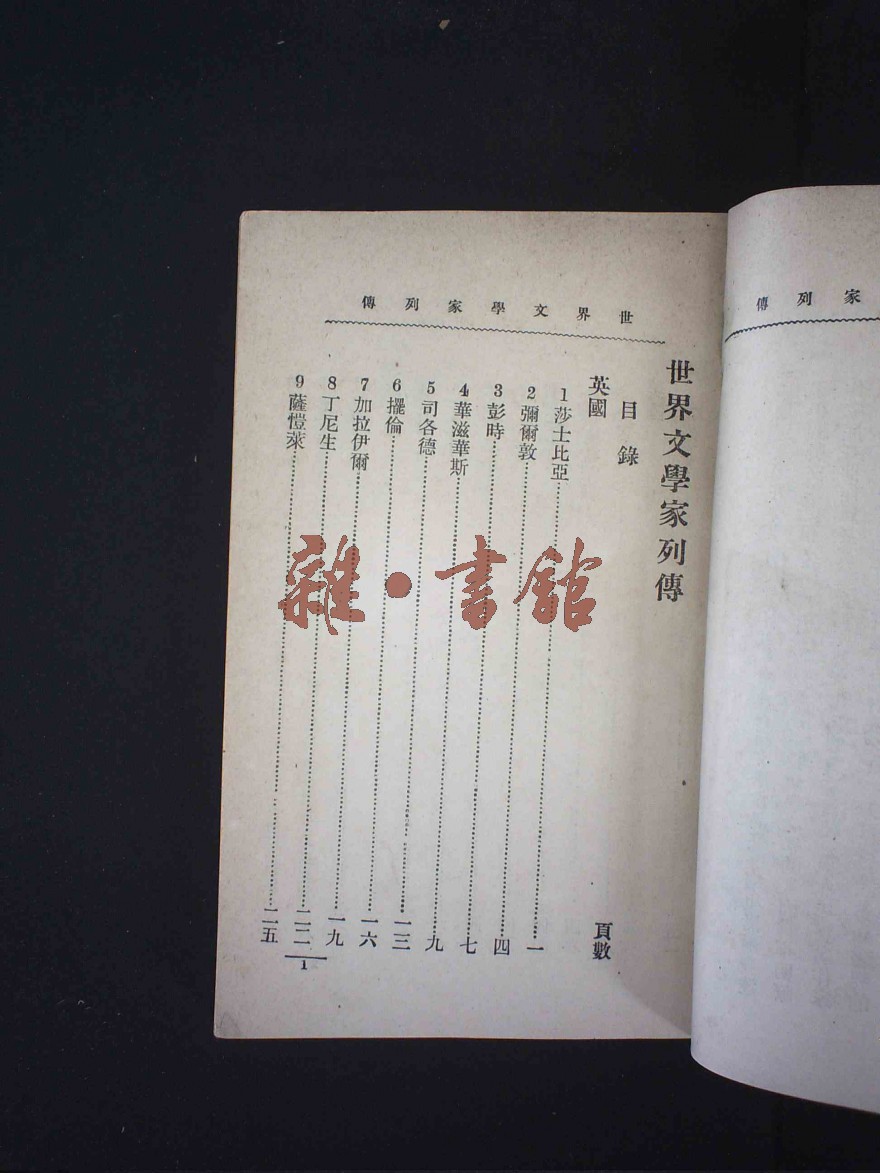 世界文學家列傳
家列傳
世界文學家列傳
目錄
英國
頁數
1 莎士比亞 一
2 彌爾敦 四
3 彭時 七
4 華滋華斯 九
5 司各德 一三
6 擺倫 一六
7 加拉伊爾 一九
8 丁尼生 二二
9 薩愷萊 二五
1
雜·書館